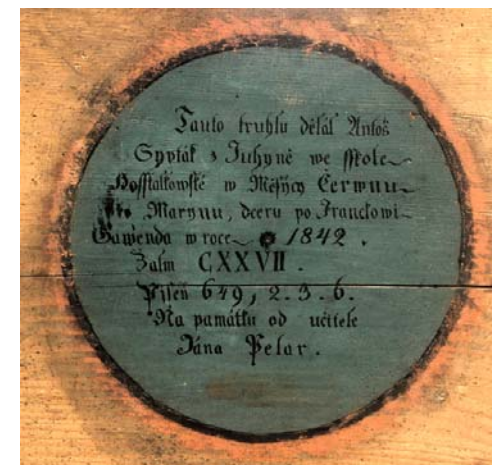 Tauto truhlu dělal Antoš
Sypták z Juhyně we sskole
Hosstalkowské w Měsýcy Čerwnu
pro Marynu, dceru po Franclowi
Gawenda w roce 1842.
Žalm CXXVII.
Pjseň 649, 2. 3. 6.
Na památku od učitele
Jána Pelar.